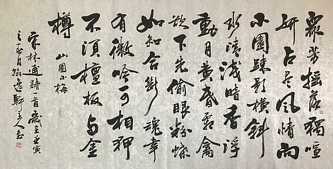 衆芳搖落獨暄
妍占盡風情向
小園疎影橫斜
水清淺暗香浮
動月黃昏霜禽
欲下先偷眼粉蝶
如知合斷魂幸
有微吟可相狎
不須檀板与金
樽 山園小梅
宋林逋詩一首歲在壬寅